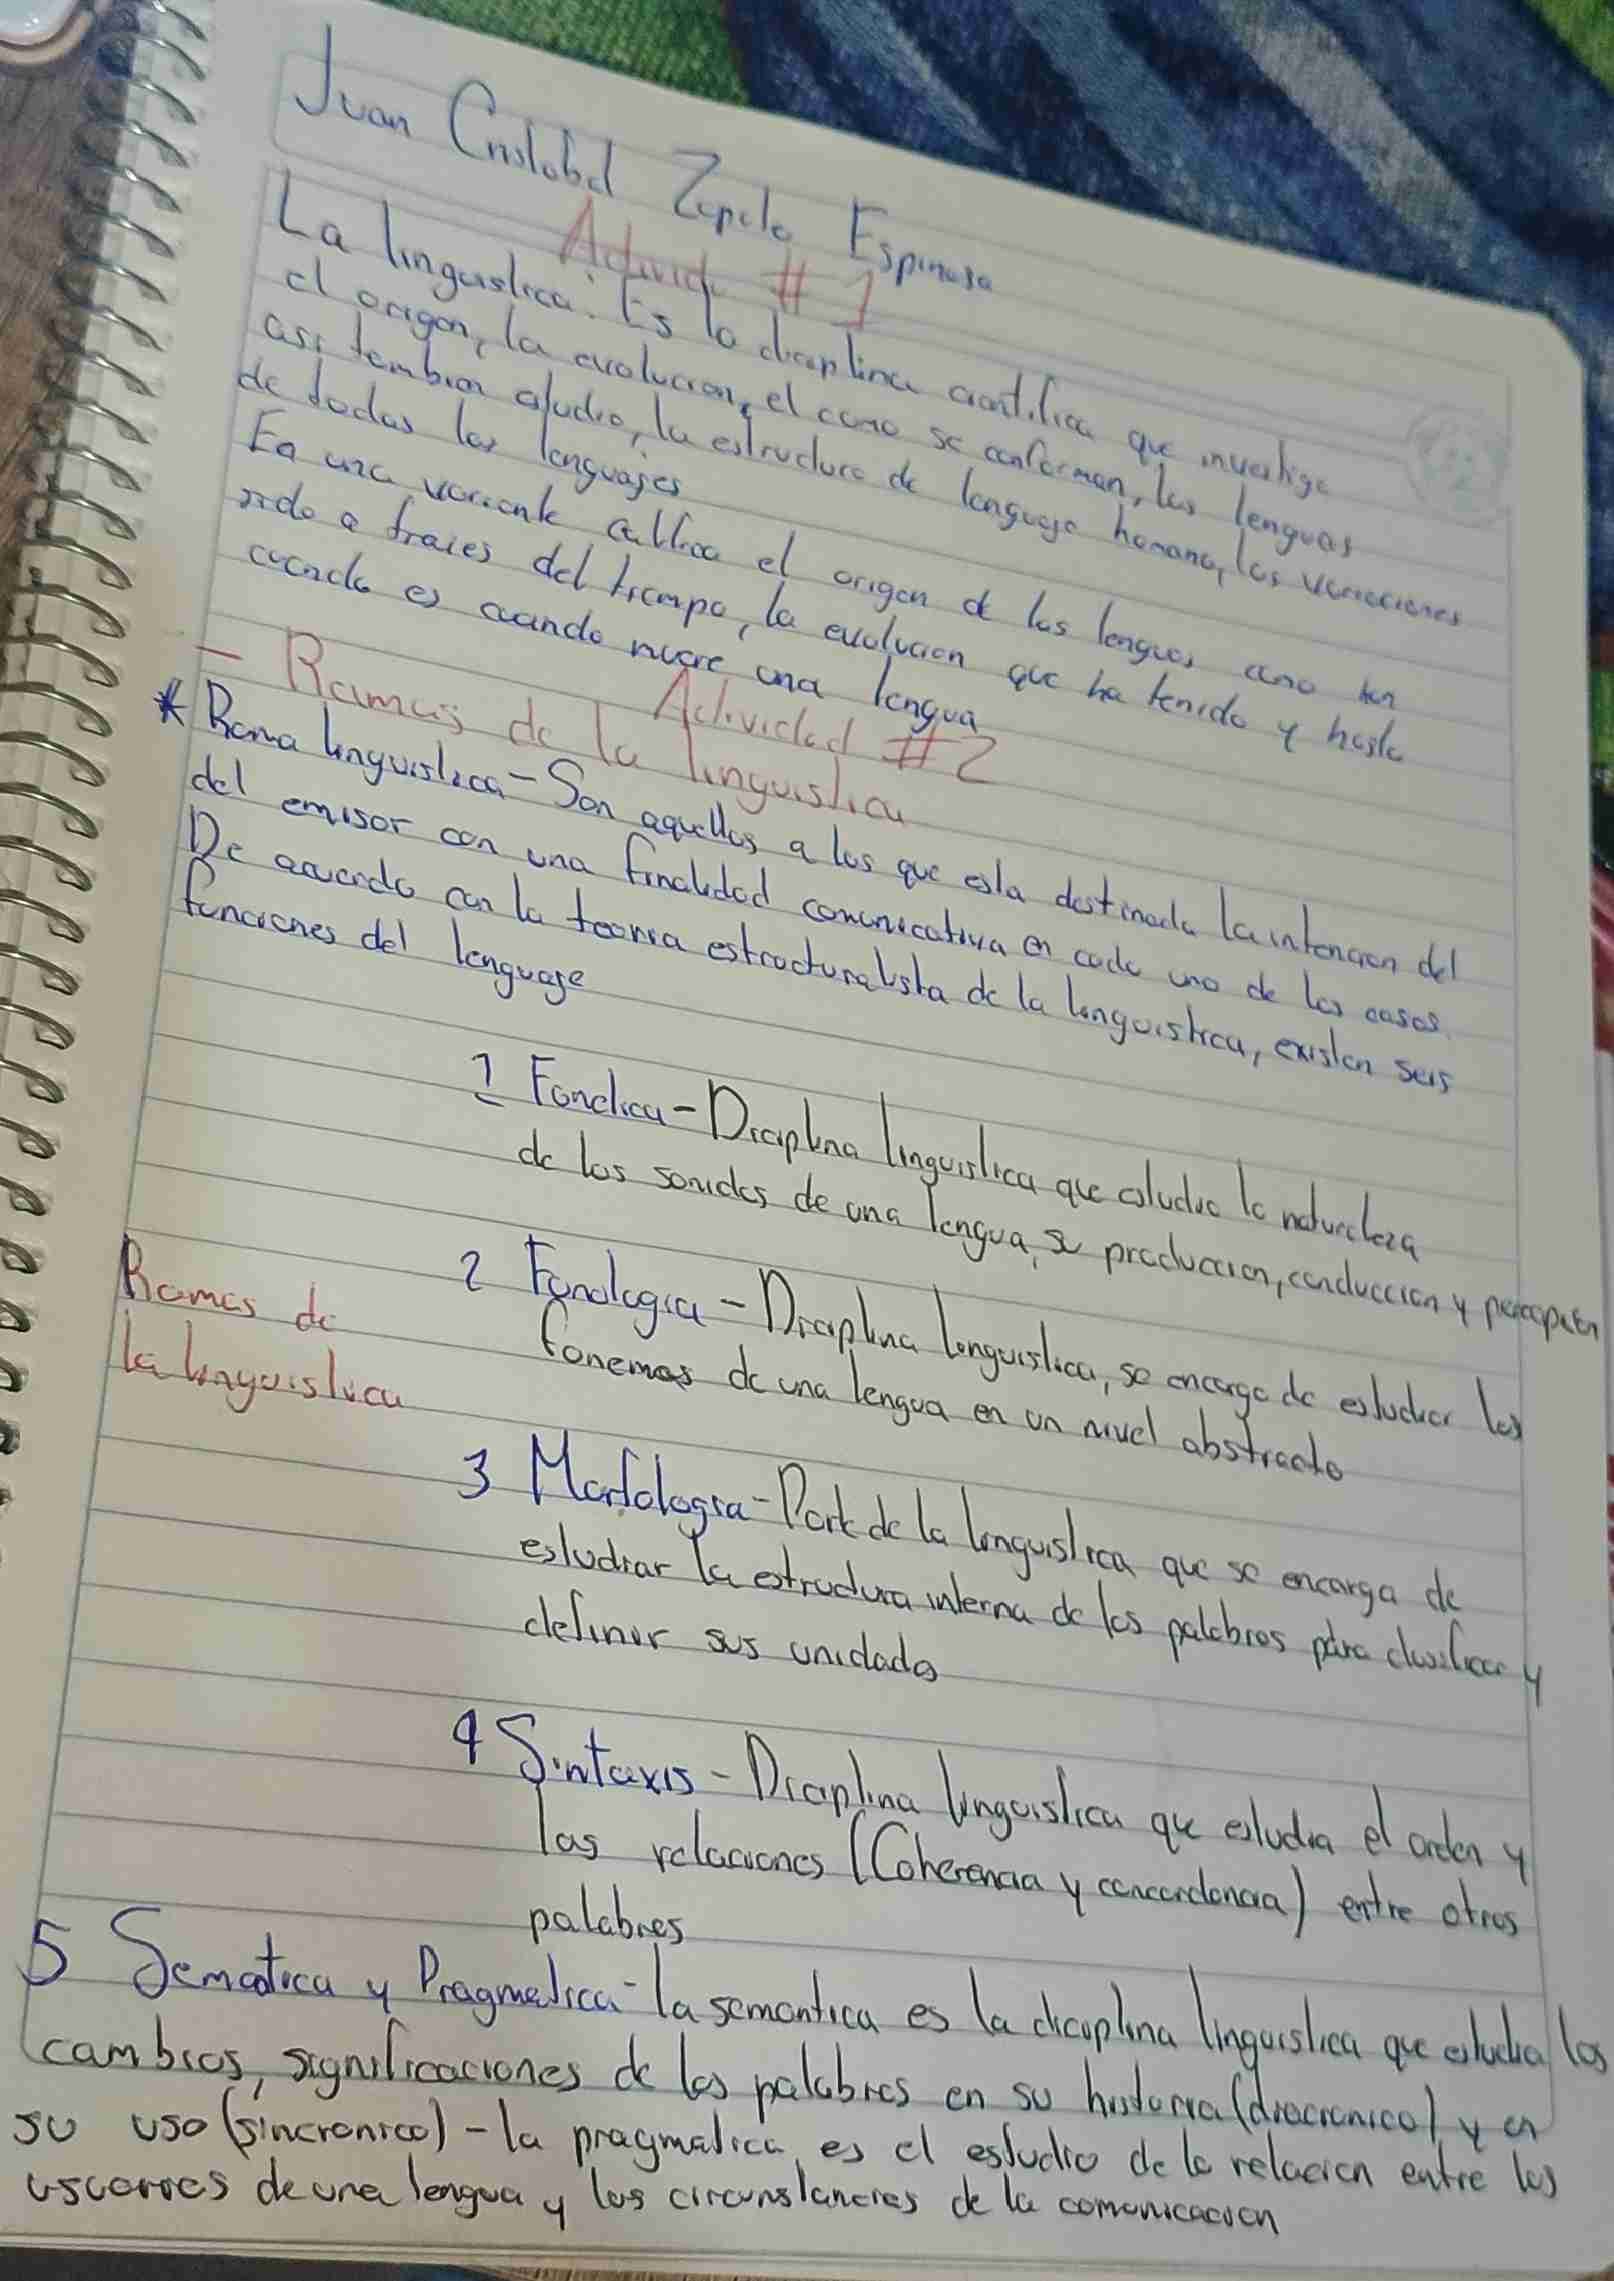 Juan Cristobal Zepeda Espinosa
Actividad #1
La linguistica. Es la diciplina cientifica que investiga
el origen, la evolucion, el como se conforman, las lenguas
asi tambien estudia, la estructura de lenguaje humano, las variaciones
de todas los lenguajes
En una variante critica el origen de las lenguas como han
sido a traves del tiempo, la evolucion que ha tenido y hasta
cuando es cuando muere una lengua
Actividad #2
- Ramas de la linguistica
* Rama linguistica - Son aquellas a las que esta destinada la intencion del
del emisor con una finalidad comunicativa en cada uno de los casos.
De acuerdo con la teoria estructuralista de la linguistica, existen seis
funciones del lenguaje
1 Fonetica - Diciplina linguistica que estudia la naturaleza
de los sonidos de una lengua, su produccion, conduccion y percepcion
2 Fonologia - Diciplina linguistica, se encarga de estudiar los
fonemas de una lengua en un nivel abstracto
Ramas de
la linguistica
3 Morfologia - Parte de la linguistica que se encarga de
estudiar la estructura interna de las palabras para clasificar y
definir sus unidades
4 Sintaxis - Diciplina linguistica que estudia el orden y
las relaciones (Coherencia y concordancia) entre otras
palabras
5 Sematica y Pragmatica - la semantica es la diciplina linguistica que estudia los
cambios, significaciones de las palabras en su historia (diacronico) y en
su uso (sincronico) - la pragmatica es el estudio de la relacion entre los
usuarios de una lengua y las circunstancias de la comunicacion